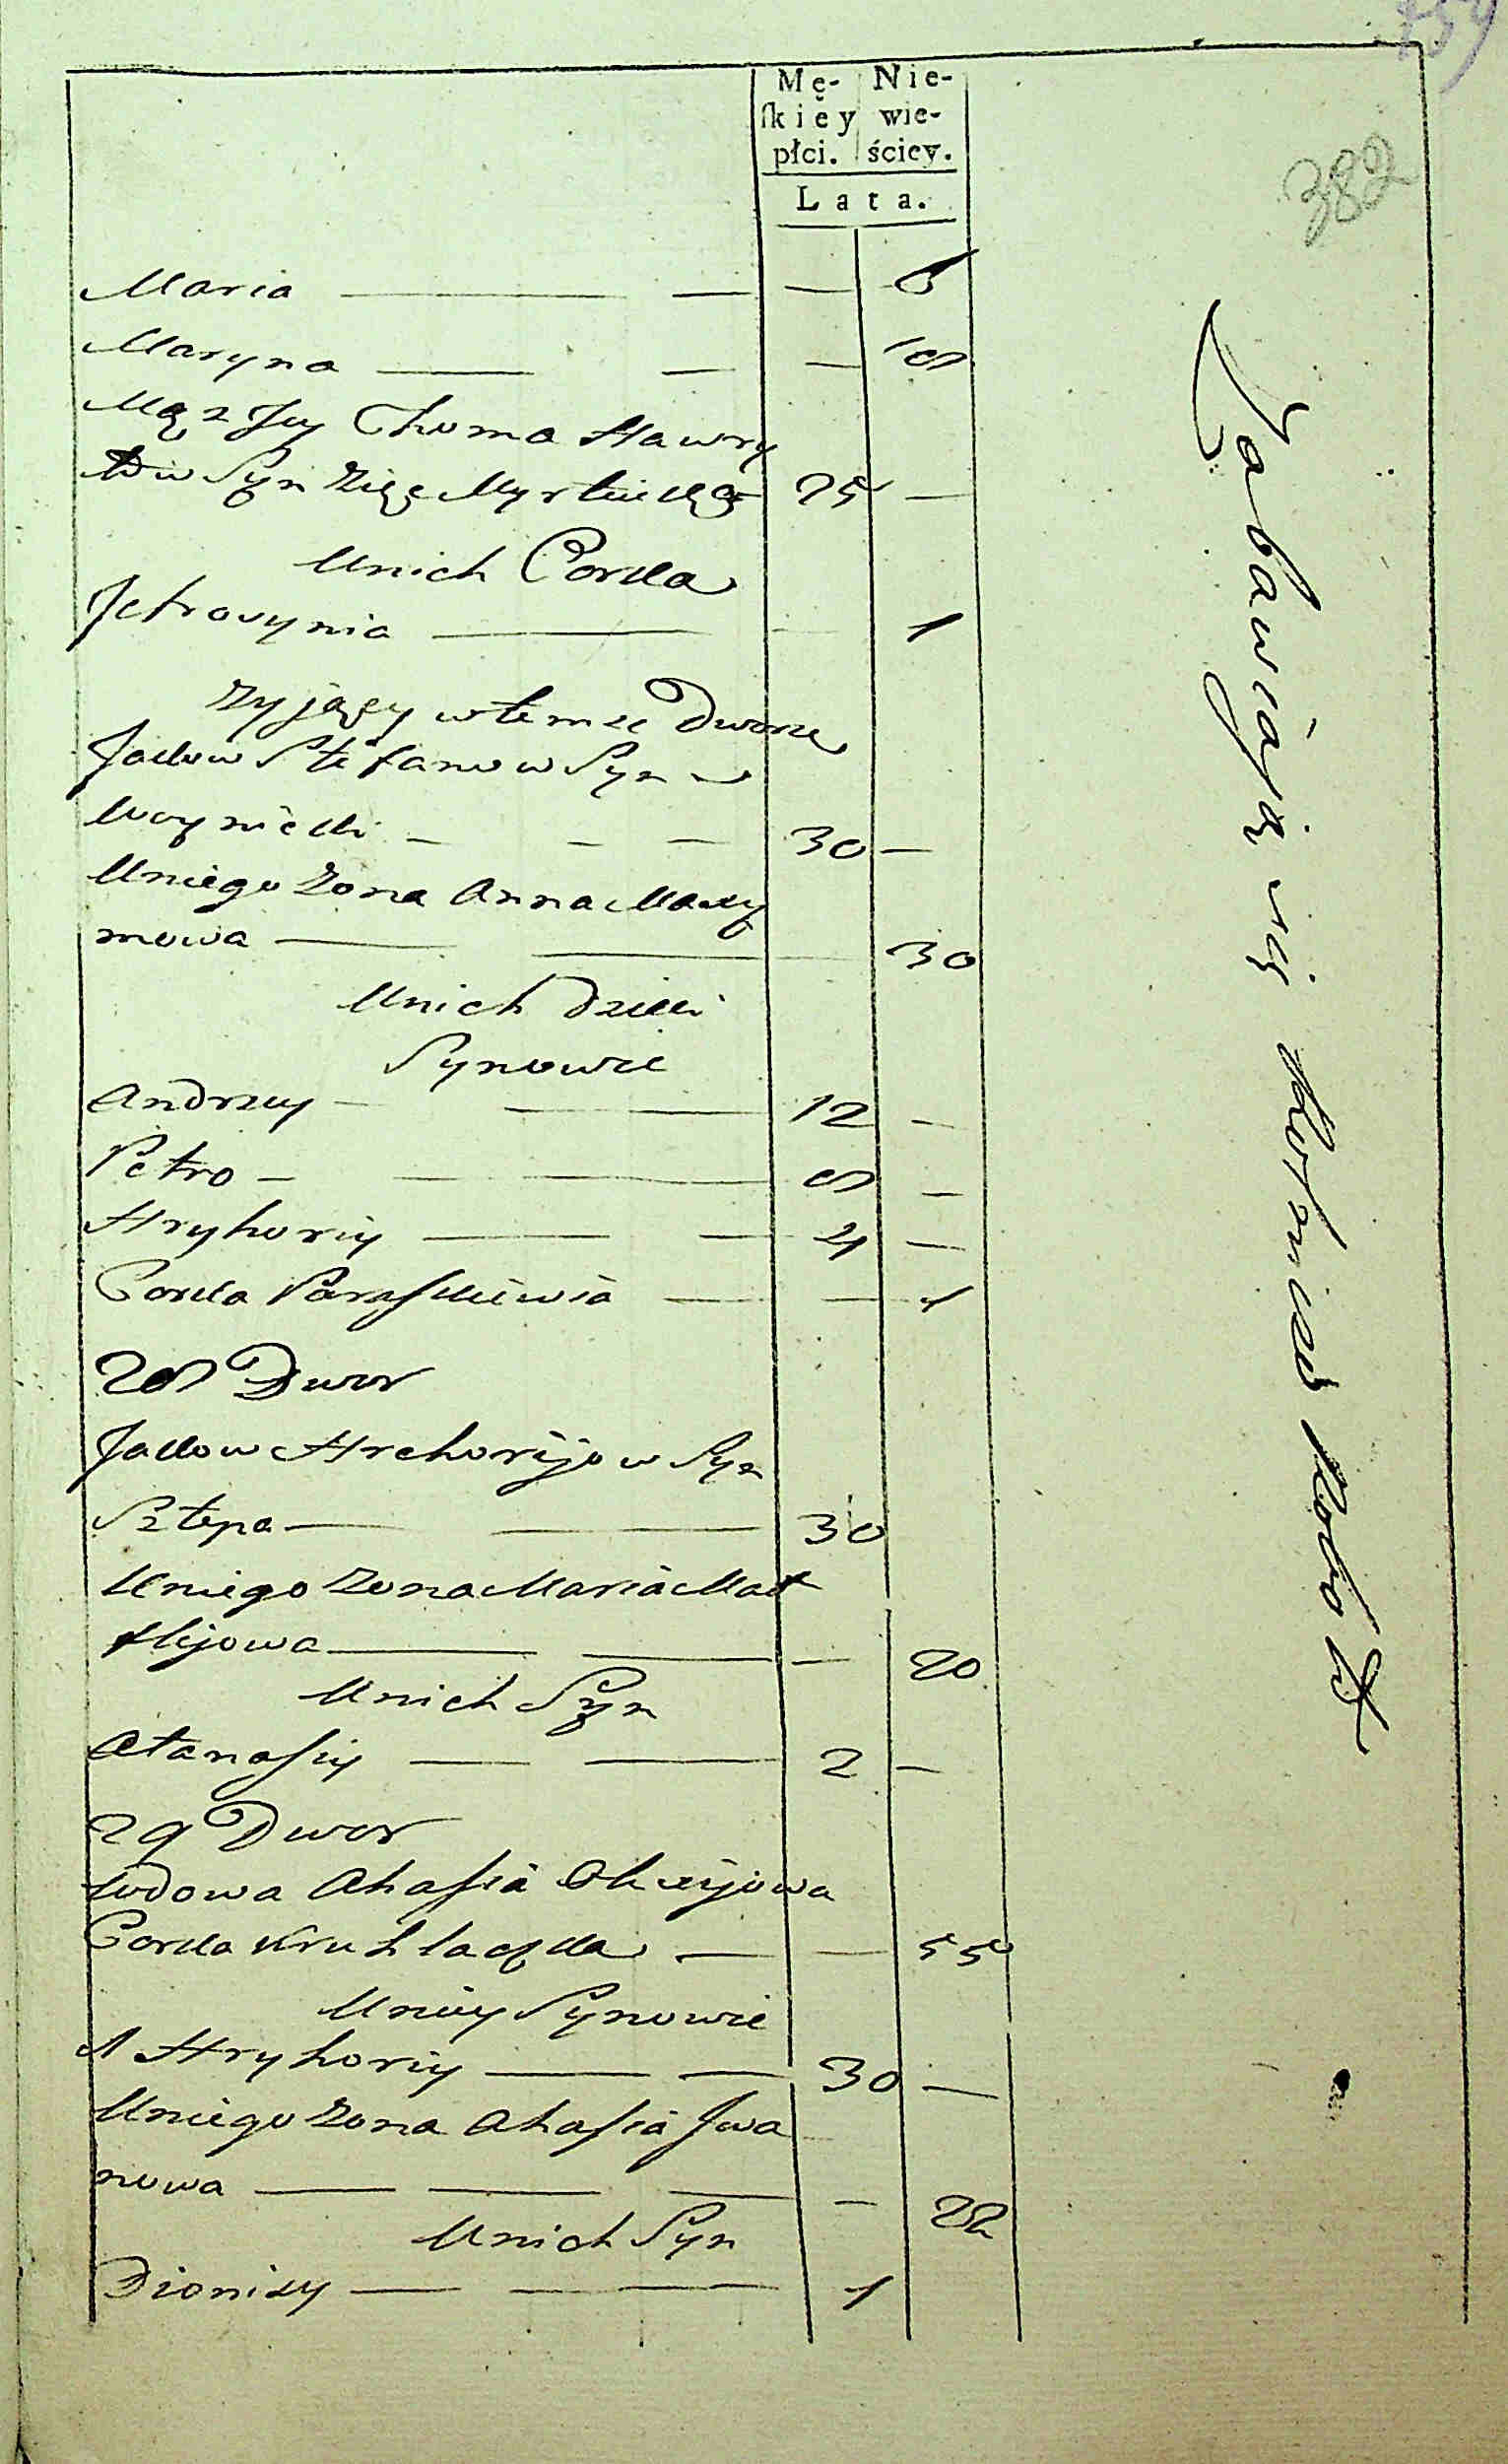 159
382
Mę- Nie-
skiey wie-
płci. ściey.
Lata.
Maria — — — 6
Maryna — — — 18
Mąż Jey Choma Hawry
łów Syn Zięć 25 —
Unich Corka
Jefrosynia — — 1
Zyjący w temże Dworze
Jakow Stefanow Syn
30 —
Uniego Zona Anna Maxy
mowa — — 30
Unich Dzieci
Synowie
Andrzey — — 12 —
Petro — — — 8 —
Hryhoriy — — 4 —
Corka Paraskiewia — — 1
28 Dwor
Jakow Hrehorijow Syn
Sztepa — — 30
Uniego Zona Maria Mat
fiijowa — — — 20
Unich Syn
Atanasiy — — 2 —
29 Dwor
Wdowa Ahafia Olexijowa
Corka Kruhlaczka — — 55
Uniey Synowie
1 Hryhoriy — — 30 —
Uniego Zona Ahafia Jwa
nowa — — — — 22
Unich Syn
Dionizy — — — 1
Zabawiają się Rolniczo Robotą